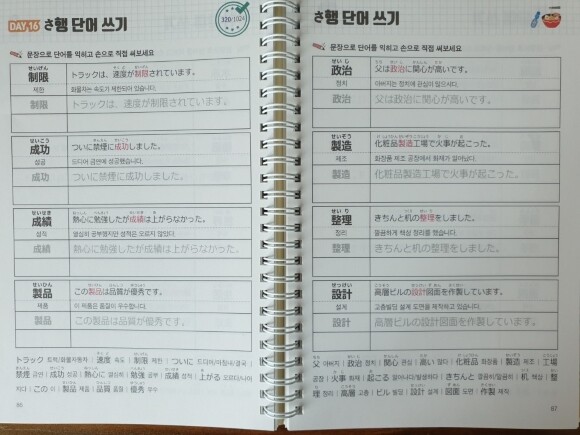 DAY 16 さ행 단어 쓰기
320/1024
문장으로 단어를 익히고 손으로 직접 써보세요
せいげん
制限
제한
トラックは、速度が制限されています。
화물차는 속도가 제한되어 있습니다.
制限 トラックは、速度が制限されています。
せいこう
成功
성공
ついに禁煙に成功しました。
드디어 금연에 성공했습니다.
成功 ついに禁煙に成功しました。
せいせき
成績
성적
熱心に勉強したが成績は上がらなかった。
열심히 공부했지만 성적은 오르지 않았다.
成績 熱心に勉強したが成績は上がらなかった。
せいひん
製品
제품
この製品は品質が優秀です。
이 제품은 품질이 우수합니다.
製品 この製品は品質が優秀です。
トラック 트럭/화물자동차 | 速度 속도 | 制限 제한 | ついに 드디어/마침내/결국
禁煙 금연 | 成功 성공 | 熱心に 열심히 | 勉強 공부 | 成績 성적 | 上がる 오르다/나아
지다 | この 이 | 製品 제품 | 品質 품질 | 優秀 우수
66
さ행 단어 쓰기
문장으로 단어를 익히고 손으로 직접 써보세요
せいじ
政治
정치
父は政治に関心が高いです。
아버지는 정치에 관심이 많으시다.
政治 父は政治に関心が高いです。
せいぞう
製造
제조
化粧品製造工場で火事が起こった。
화장품 제조 공장에서 화재가 일어났다.
製造 化粧品製造工場で火事が起こった。
せいり
整理
정리
きちんと机の整理をしました。
말끔하게 책상 정리를 했습니다.
整理 きちんと机の整理をしました。
せっけい
設計
설계
高層ビルの設計図面を作製しています。
고층빌딩 설계 도면을 제작하고 있습니다.
設計 高層ビルの設計図面を作製しています。
父 아버지 | 政治 정치 | 関心 관심 | 高い 많다 | 化粧品 화장품 | 製造 제조 | 工場
공장 | 火事 화재 | 起こる 일어나다/발생하다 | きちんと 말끔히/깔끔히 | 机 책상 | 整
理 정리 | 高層 고층 | ビル 빌딩 | 設計 설계 | 図面 도면 | 作製 제작
67